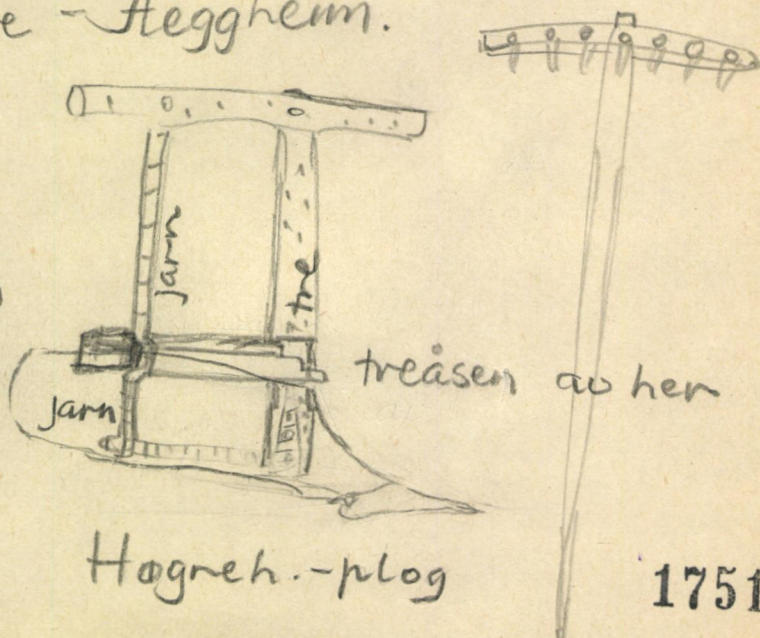 e - Heggheim.
jarn
tre
treåsen av her
jarn
Høgreh.-plog
1751